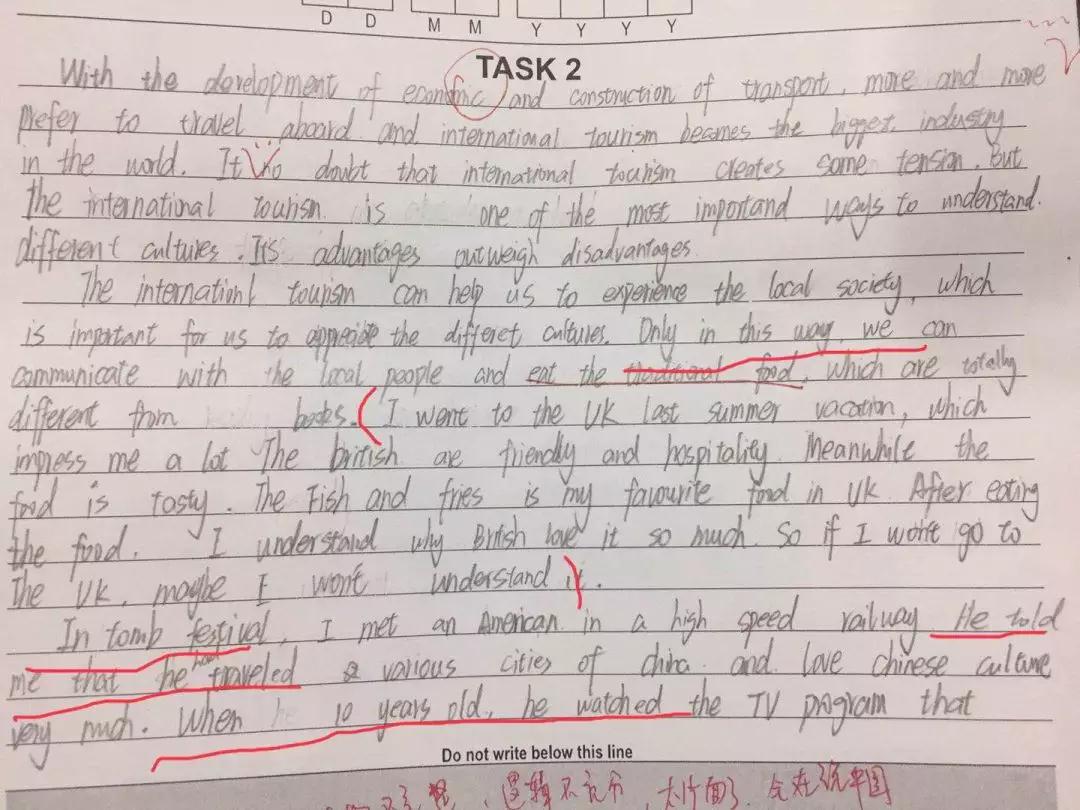 D D M M Y Y Y Y
TASK 2
With the development of economic and construction of transport, more and more
prefer to travel aboard and international tourism becomes the biggest industry
in the world. It no doubt that international tourism creates some tension. But
the international tourism is one of the most importand ways to understand.
different cultures. It's advantages outweigh disadvantages
The internationl tourism can help us to experience the local society, which
is important for us to the differet cultures. Only in this way, we can
communicate with the local people and eat the traditional food, which are totally
different from books. I went to the UK last summer vacation, which
impress me a lot The british are friendly and hospitality Meanwhile the
food is tasty. The Fish and fries is my favourite food in UK After eating
the food. I understand why British love it so much. So if I won't go to
The UK, maybe I won't understand it.
In tomb festival, I met an American in a high speed railway He told
me that he had traveled various cities of china and love chinese culture
very much. When he 10 years old, he watched the TV program that
Do not write below this line
逻辑不充分，太片面了，全在说中国